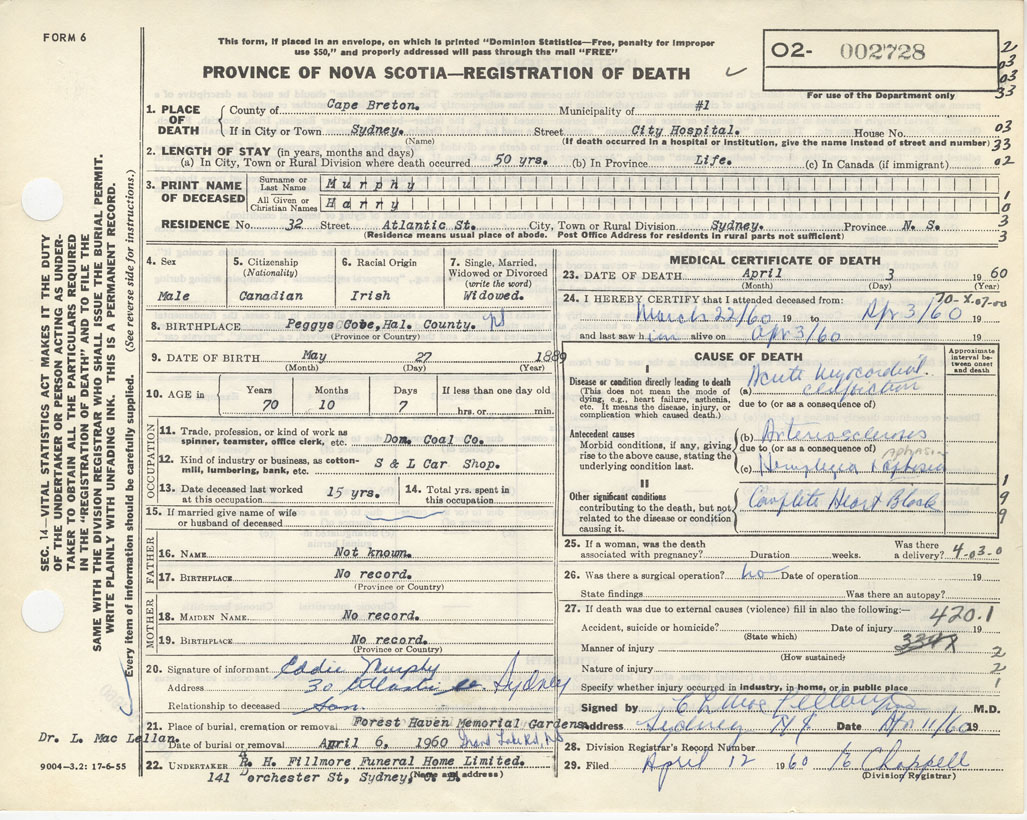 FORM 6
This form, if placed in an envelope, on which is printed "Dominion Statistics—Free, penalty for improper
use $50," and properly addressed will pass through the mail "FREE"
PROVINCE OF NOVA SCOTIA—REGISTRATION OF DEATH
02- 002728
For use of the Department only
2
03
03
33
1. PLACE OF DEATH
County of Cape Breton. Municipality of #1
If in City or Town Sydney. Street City Hospital. House No. 03
(Name) (If death occurred in a hospital or institution, give the name instead of street and number) 33
2. LENGTH OF STAY (in years, months and days)
(a) In City, Town or Rural Division where death occurred 50 yrs. (b) In Province Life. (c) In Canada (if immigrant) 02
3. PRINT NAME OF DECEASED
Surname or Last Name Murphy 1
All Given or Christian Names Harry 0
RESIDENCE No. 32 Street Atlantic St. City, Town or Rural Division Sydney. Province N. S. 3
(Residence means usual place of abode. Post Office Address for residents in rural parts not sufficient) 3
4. Sex
Male
5. Citizenship
(Nationality)
Canadian
6. Racial Origin
Irish
7. Single, Married,
Widowed or Divorced
(write the word)
Widowed.
8. BIRTHPLACE Peggys Cove, Hal. County.
(Province or Country)
9. DATE OF BIRTH May 27 1889
(Month) (Day) (Year)
10. AGE in
Years 70
Months 10
Days 7
If less than one day old
hrs. or min.
OCCUPATION
11. Trade, profession, or kind of work as
spinner, teamster, office clerk, etc. Dom. Coal Co.
12. Kind of industry or business, as cotton-
mill, lumbering, bank, etc. S & L Car Shop.
13. Date deceased last worked
at this occupation 15 yrs.
14. Total yrs. spent in
this occupation.
15. If married give name of wife
or husband of deceased
FATHER
16. NAME Not known.
17. BIRTHPLACE No record.
(Province or Country)
MOTHER
18. MAIDEN NAME No record.
19. BIRTHPLACE No record.
(Province or Country)
20. Signature of informant Eddie Murphy
Address 30 Atlantic St. Sydney
Relationship to deceased Son.
21. Place of burial, cremation or removal Forest Haven Memorial Gardens
Date of burial or removal April 6, 1960
22. UNDERTAKER R. H. Fillmore Funeral Home Limited.
141 Dorchester St, Sydney,
(Name and address)
MEDICAL CERTIFICATE OF DEATH
23. DATE OF DEATH April 3 1960
(Month) (Day) (Year)
24. I HEREBY CERTIFY that I attended deceased from:
March 22/60 19 to Apr 3/60 19
and last saw him alive on Apr 3/60 19
CAUSE OF DEATH
Approximate
interval be-
tween onset
and death
I
Disease or condition directly leading to death
(This does not mean the mode of
dying, e.g., heart failure, asthenia,
etc. It means the disease, injury, or
complication which caused death.)
(a) Acute myocardial
due to (or as a consequence of)
Antecedent causes
Morbid conditions, if any, giving
rise to the above cause, stating the
underlying condition last.
(b) Arteriosclerosis
due to (or as a consequence of)
aphasia
(c) Hemiplegia & aphasia
II
Other significant conditions
contributing to the death, but not
related to the disease or condition
causing it.
Complete Heart Block
1
9
9
25. If a woman, was the death
associated with pregnancy? Duration weeks. Was there
a delivery? 4-03-0
26. Was there a surgical operation? no Date of operation 19
State findings Was there an autopsy?
27. If death was due to external causes (violence) fill in also the following:—
420.1
Accident, suicide or homicide? Date of injury 19
(State which)
Manner of injury 2
(How sustained)
Nature of injury 2
Specify whether injury occurred in industry, in home, or in public place 1
Signed by M.D.
Address Sydney N S Date Apr 11/60 19
28. Division Registrar's Record Number
29. Filed April 12 1960 Chappell
(Division Registrar)
SEC. 14—VITAL STATISTICS ACT MAKES IT THE DUTY
OF THE UNDERTAKER OR PERSON ACTING AS UNDER-
TAKER TO OBTAIN ALL THE PARTICULARS REQUIRED
IN THE "REGISTRATION OF DEATH" AND TO FILE THE
SAME WITH THE DIVISION REGISTRAR WHO SHALL ISSUE THE BURIAL PERMIT.
WRITE PLAINLY WITH UNFADING INK. THIS IS A PERMANENT RECORD.
Every item of information should be carefully supplied. (See reverse side for instructions.)
Dr. L. Mac Lellan.
9004-3.2: 17-6-55